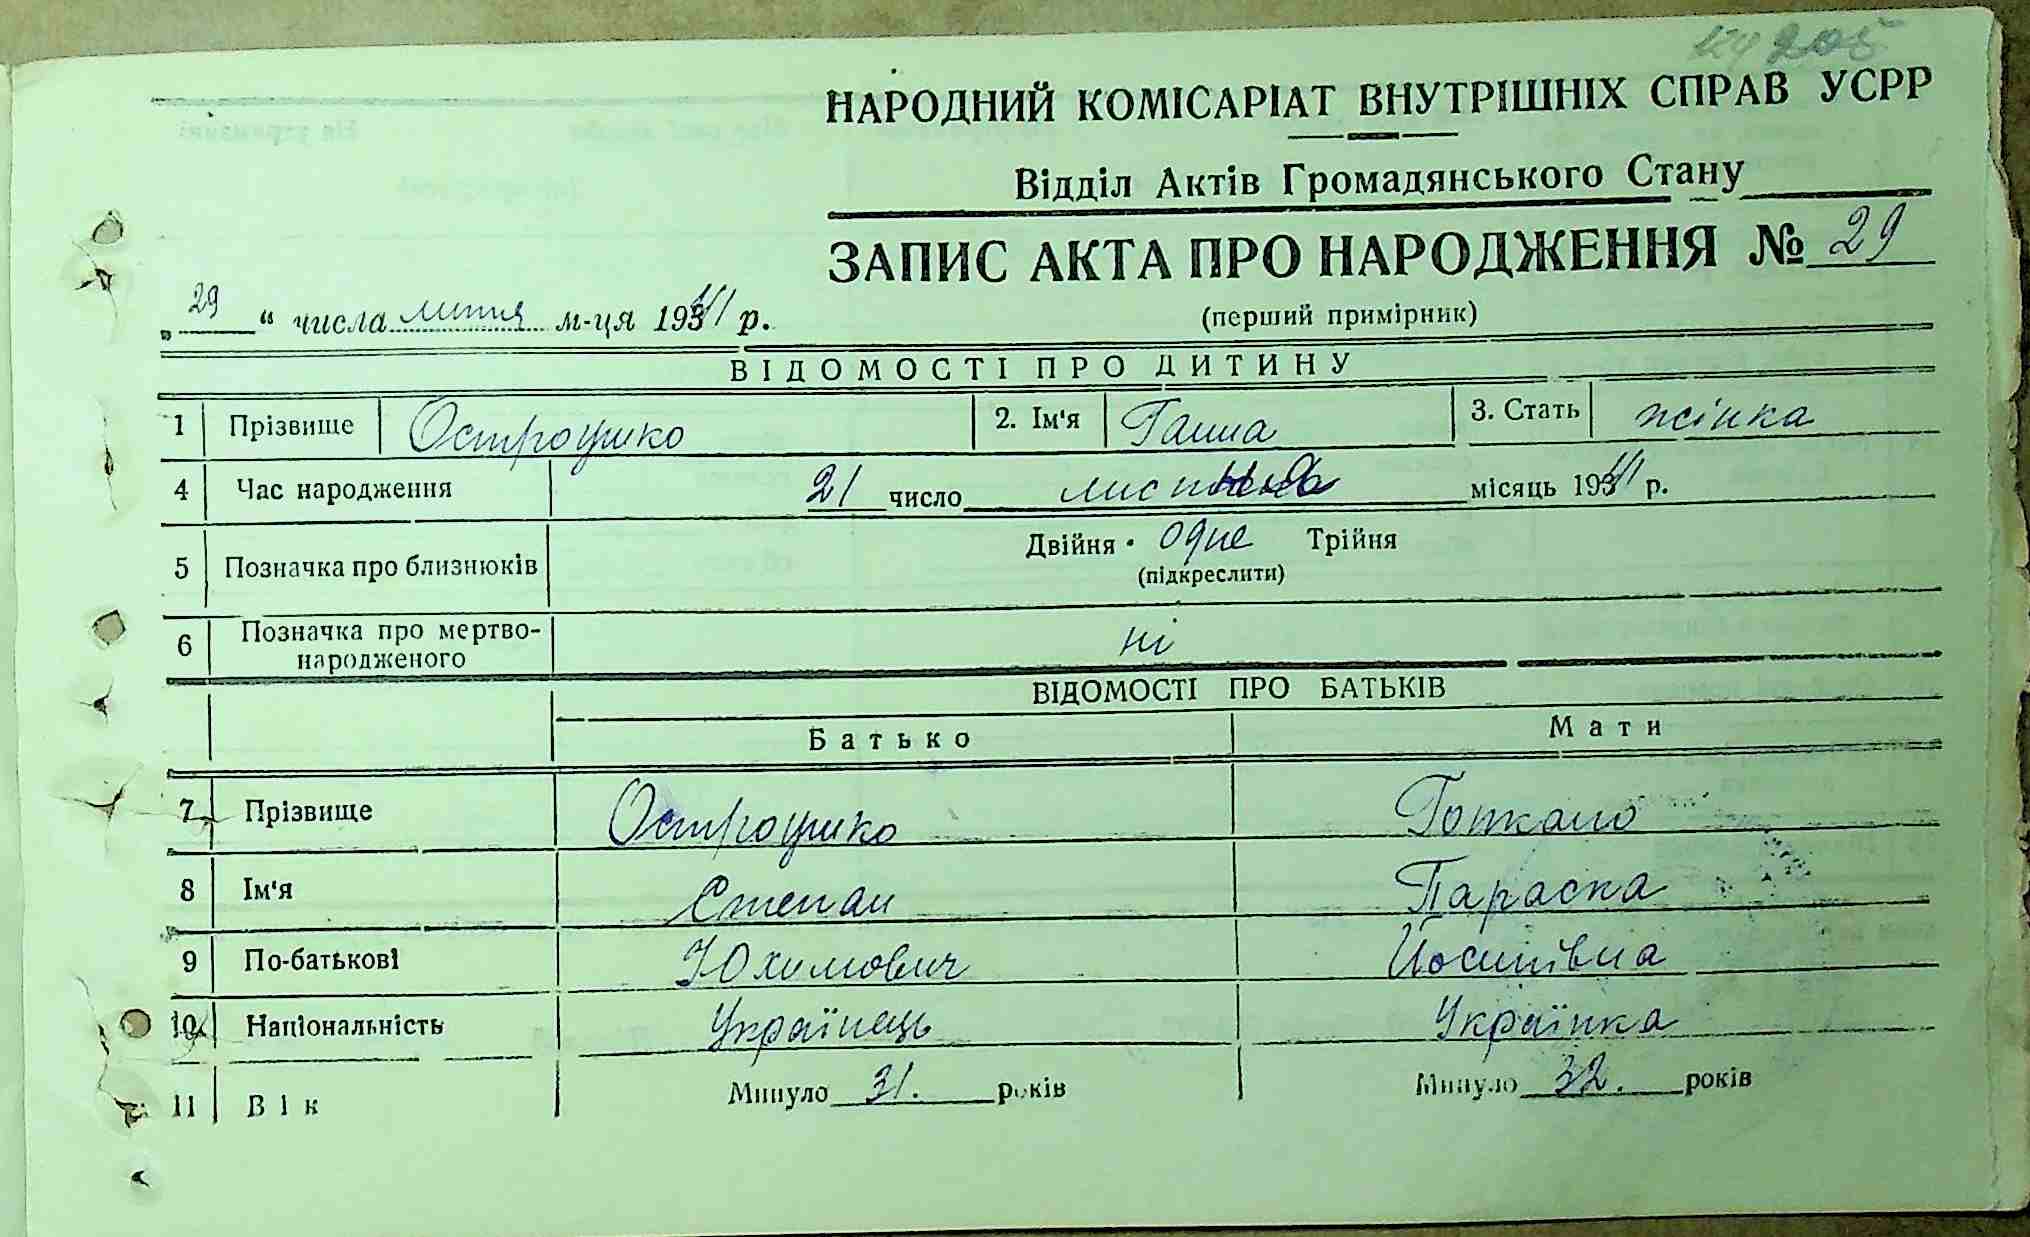 205
НАРОДНИЙ КОМІСАРІАТ ВНУТРІШНІХ СПРАВ УСРР
Відділ Актів Громадянського Стану
ЗАПИС АКТА ПРО НАРОДЖЕННЯ № 29
„ 29 “ числа липня м-ця 1941 р.
(перший примірник)
ВІДОМОСТІ ПРО ДИТИНУ
1 Прізвище Остроушко 2. Ім'я Ганна 3. Стать жінка
4 Час народження 21 число місяць 1941 р.
5 Позначка про близнюків Двійня одне Трійня
(підкреслити)
6 Позначка про мертво-
народженого ні
ВІДОМОСТІ ПРО БАТЬКІВ
Батько Мати
7 Прізвище Остроушко
8 Ім'я Степан Параска
9 По-батькові Юхимович Йосипівна
10 Національність Українець Українка
11 Вік Минуло 31. років Минуло 32. років